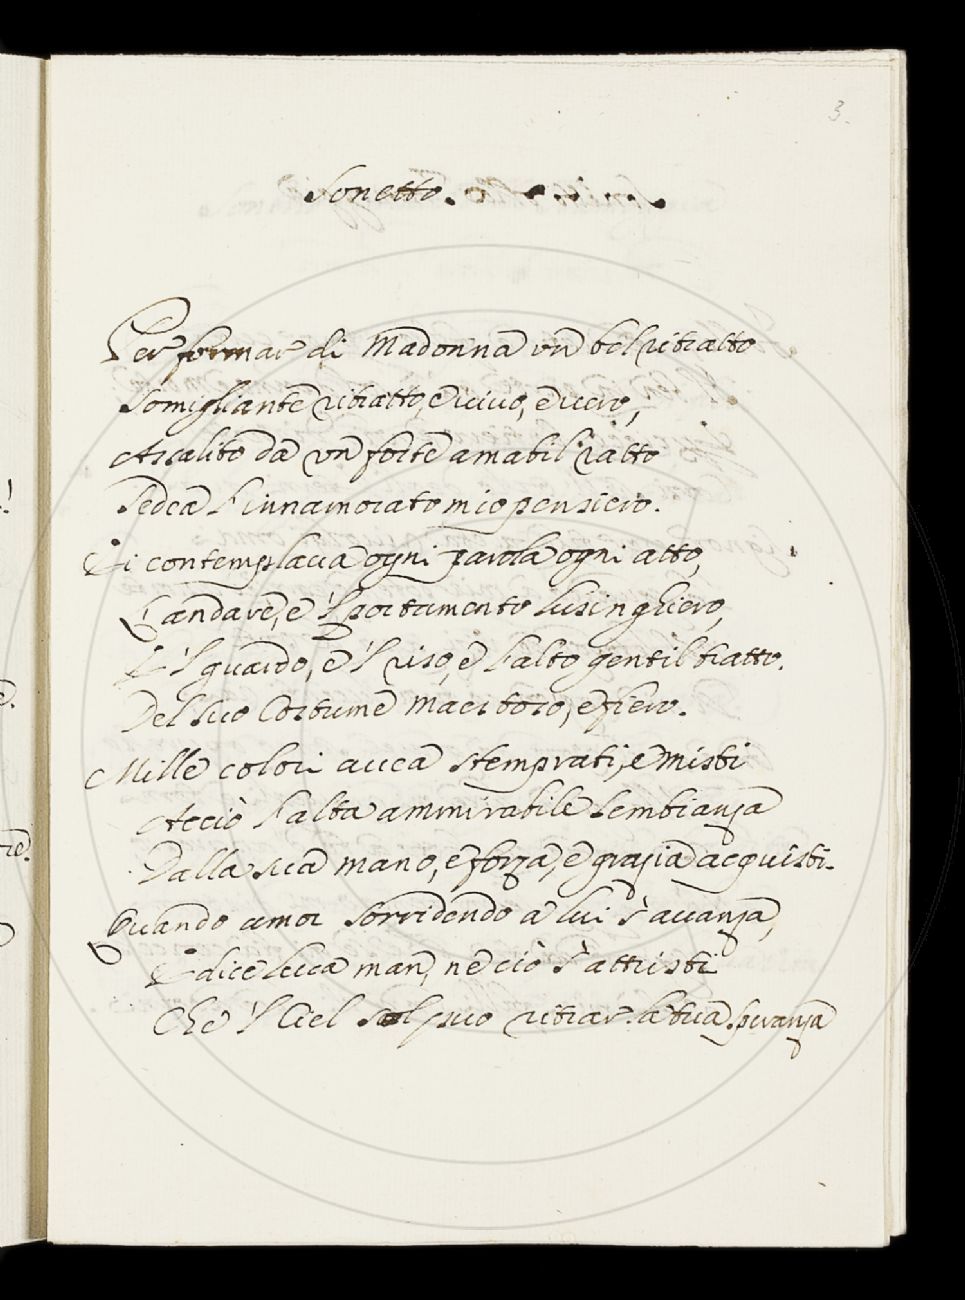 3.
Sonetto.
Per formar di Madonna vn bel ritratto
Somigliante ritratto, e viuo, e vero,
Assalito da vn forte amabil ratto
Sedea l'innamorato mio pensiero.
Ei contemplaua ogni parola ogni atto,
L'andare, e 'l portamento lusinghiero,
E 'l guardo, e 'l viso, e l'alto gentil tratto.
Del suo Costume maestoso, e fiero.
Mille colori auea stemprati, e misti
Acciò l'alta ammirabile sembianza
Dalla sua mano, e forza, e grazia acquisti.
Quando amor sorridendo a lui s'auanza,
E dice leua man, ne ciò s'attristi
Che 'l Ciel sol può ritrar la tua speranza